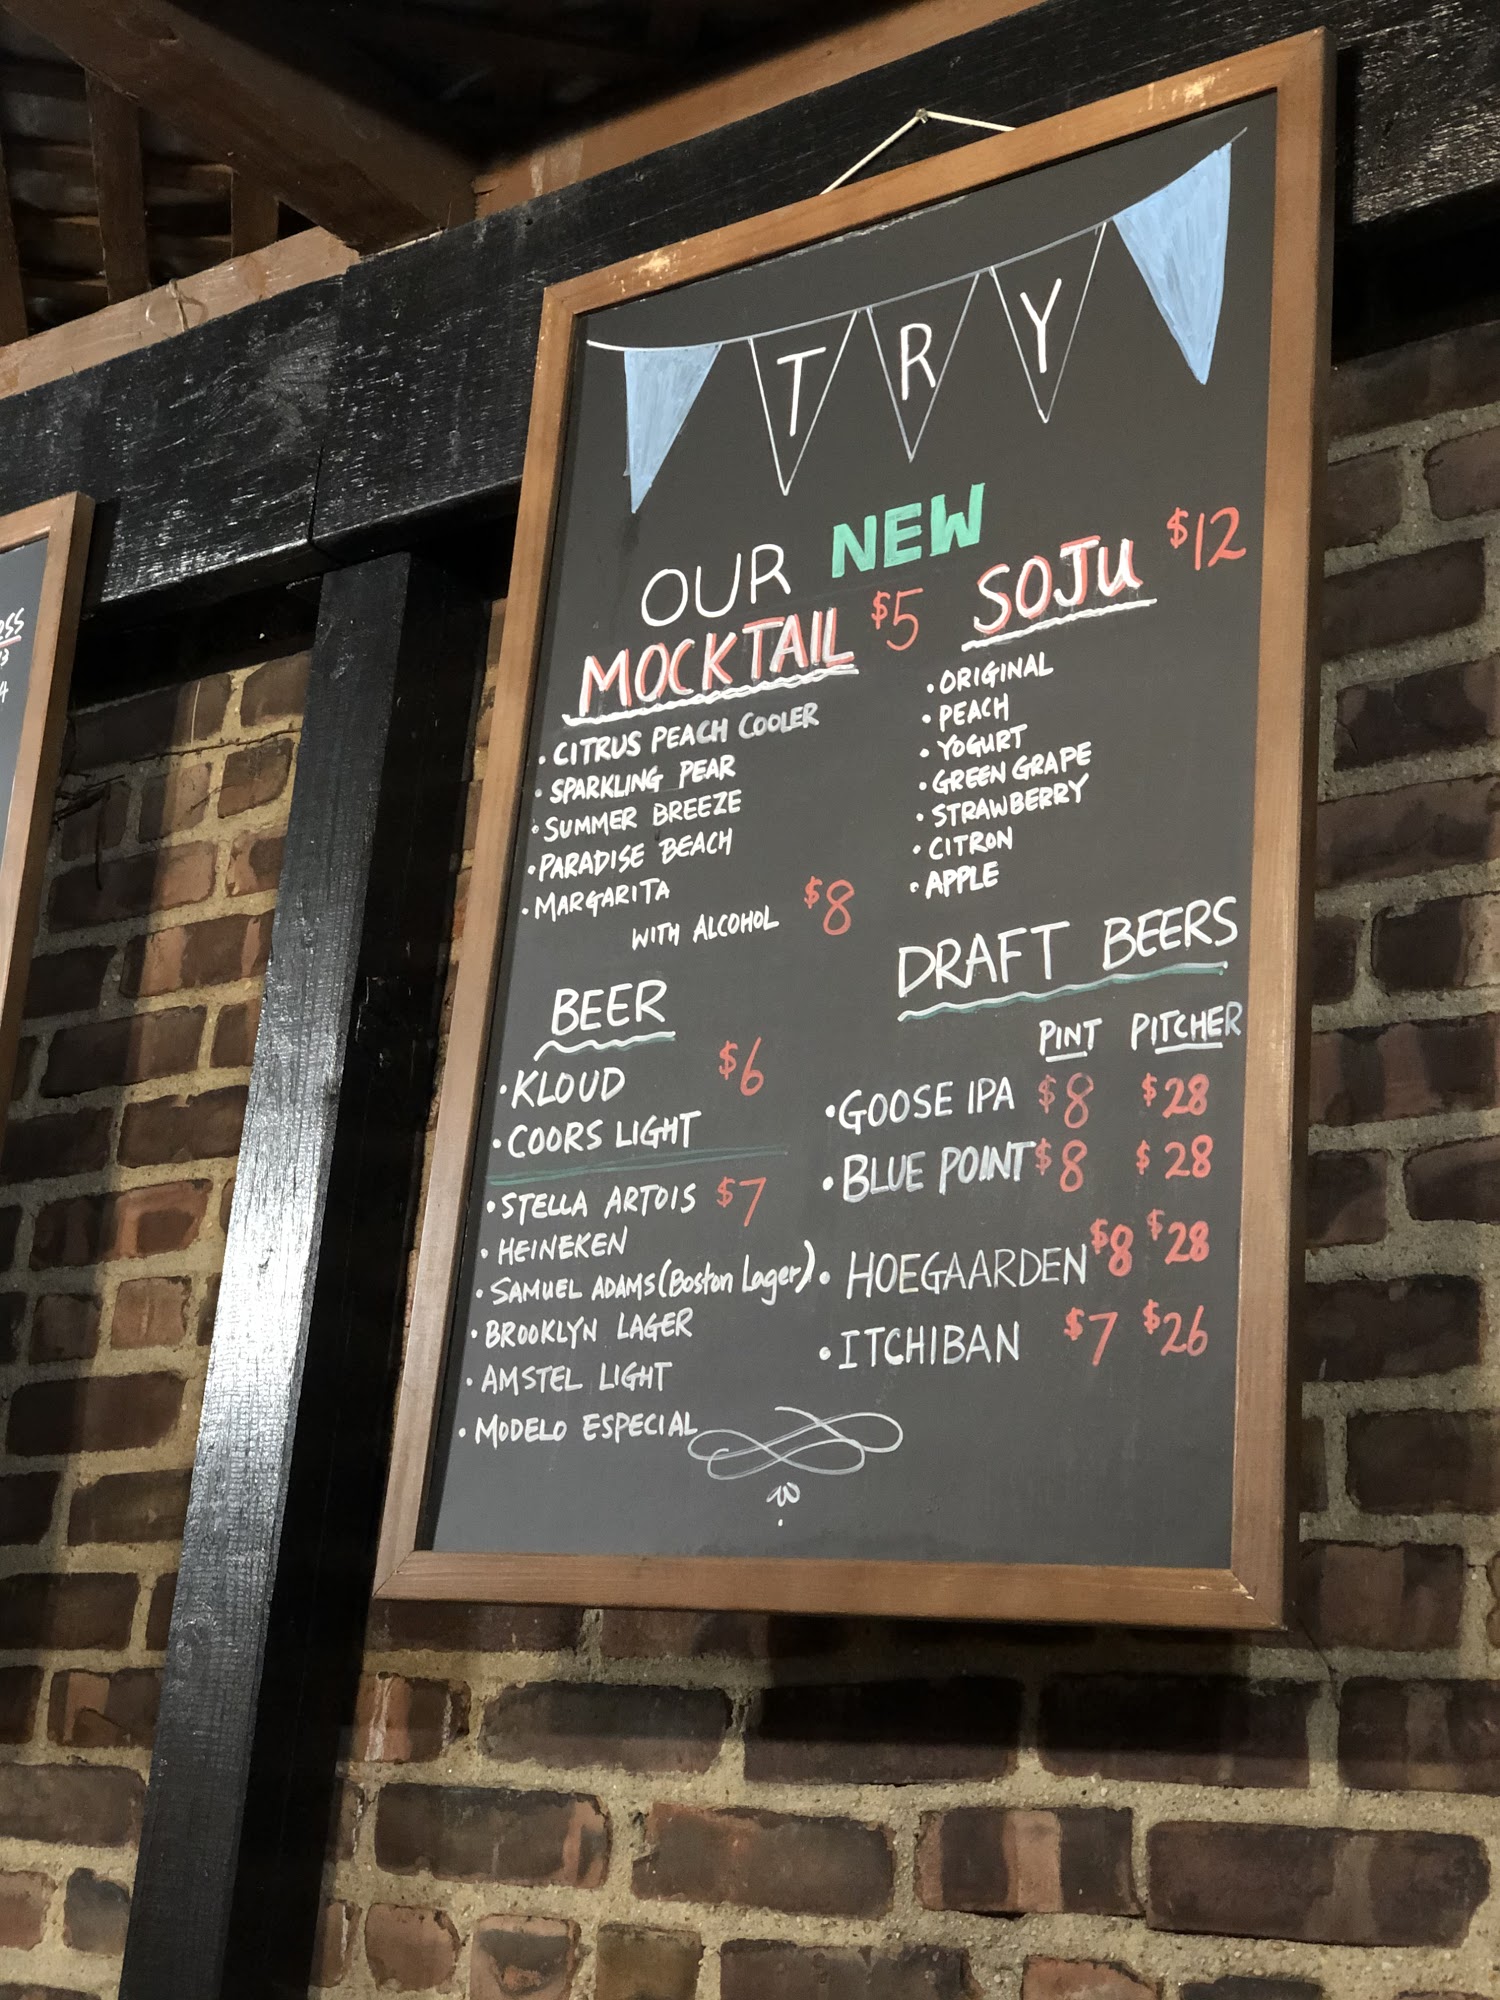 TRY
OUR NEW
MOCKTAIL $5
• CITRUS PEACH COOLER
• SPARKLING PEAR
• SUMMER BREEZE
• PARADISE BEACH
• MARGARITA
WITH ALCOHOL $8
SOJU $12
• ORIGINAL
• PEACH
• YOGURT
• GREEN GRAPE
• STRAWBERRY
• CITRON
• APPLE
BEER
• KLOUD $6
• COORS LIGHT
• STELLA ARTOIS $7
• HEINEKEN
• SAMUEL ADAMS (Boston Lager)
• BROOKLYN LAGER
• AMSTEL LIGHT
• MODELO ESPECIAL
DRAFT BEERS
PINT PITCHER
• GOOSE IPA $8 $28
• BLUE POINT $8 $28
• HOEGAARDEN $8 $28
• ITCHIBAN $7 $26